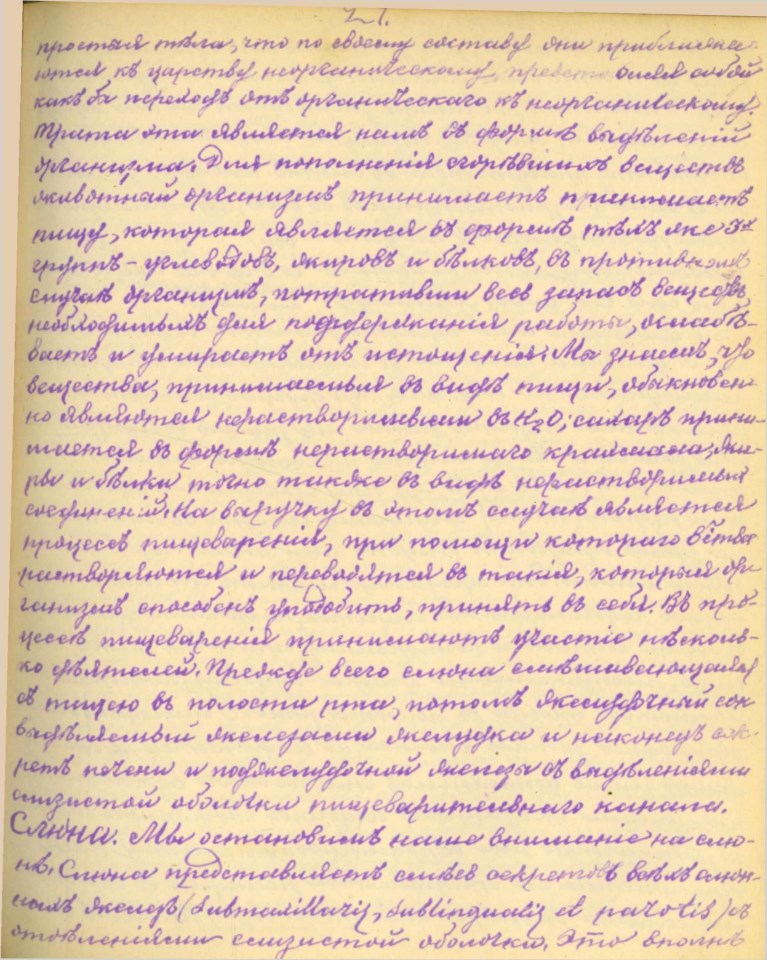 27.
простыя тѣла, что по своему составу они приближа-
ются къ царству неорганическому, представляя собой
какъ бы переходъ отъ органическаго къ неорганическому.
Трата эта является намъ въ формѣ выдѣленій
организма. Для пополненія сгорѣвшихъ веществъ
животный организмъ принимаетъ принимаетъ
пищу, которая является въ формѣ тѣхъ же 3-х
группъ – углеводовъ, жировъ и бѣлковъ, въ противномъ
случаѣ организмъ, потративши весь запасъ веществъ,
необходимыхъ для поддержанія работы, ослабѣ-
ваетъ и умираетъ отъ истощенія. Мы знаемъ, что
вещества, принимаемыя въ видѣ пищи, обыкновен-
но являются нерастворимыми въ H2O; сахаръ прини-
мается въ формѣ нерастворимаго крахмала, жи-
ры и бѣлки точно также въ видѣ нерастворимыхъ
соединеній. На выручку въ этомъ случаѣ является
процессъ пищеваренія, при помощи котораго в-ства
растворяются и переводятся въ такія, которыя ор-
ганизмъ способенъ уподобить, принять въ себя. Въ про-
цессѣ пищеваренія принимаютъ участіе нѣсколь-
ко дѣятелей. Прежде всего слюна смѣшивающаяся
съ пищею въ полости рта, потомъ желудочный сок
выдѣляемый железами желудка и наконецъ сек-
ретъ печени и поджелудочной железы съ выдѣленіями
слизистой оболочки пищеварительнаго канала.
Слюна. Мы остановимъ наше вниманіе на слю-
нѣ. Слюна представляетъ смѣсь секретовъ всѣхъ слюн-
ныхъ железъ (Submaxillaris, sublingualis et parotis) съ
отдѣленіями слизистой оболочки. Это вполнѣ